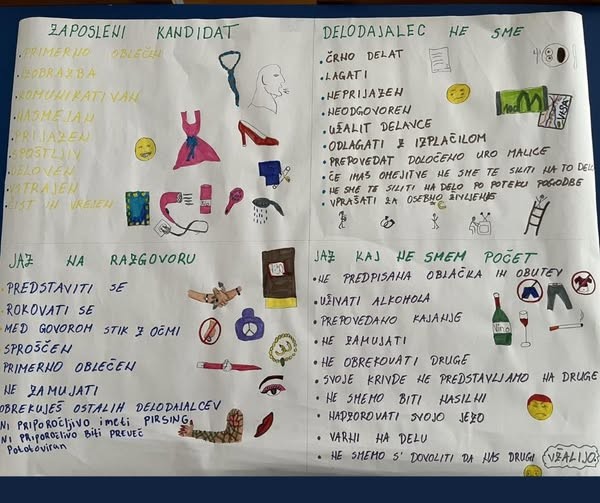 ZAPOSLENI KANDIDAT
PRIMERNO OBLEČEN
IZOBRAZBA
KOMUNIKATIVAN
NASMEJAN
PRIJAZEN
SPOŠTLJIV
DELOVEN
VSTRAJEN
ČIST IN UREJEN
DELODAJALEC NE SME
ČRNO DELAT
LAGATI
NEPRIJAZEN
NEODGOVOREN
UŽALIT DELAVCE
ODLAGATI Z IZPLAČILOM
PREPOVEDAT DOLOČENO URO MALICE
ČE IMAŠ OMEJITVE NE SME TE SILITI NA TO DELO
NE SME TE SILITI NA DELO PO POTEKU POGODBE
VPRAŠATI ZA OSEBNO ŽIVLJENJE
JAZ NA RAZGOVORU
PREDSTAVITI SE
ROKOVATI SE
MED GOVOROM STIK Z OČMI
SPROŠČEN
PRIMERNO OBLEČEN
NE ZAMUJATI
OBREKUJEŠ OSTALIH DELODAJALCEV
NI PRIPOROČLJIVO imeti PIRSING
NI PRIPOROČLIVO BITI PREVEČ
Potetoviran
JAZ KAJ NE SMEM POČET
NE PREDPISANA OBLAČKA IN OBUTEV
UŽIVATI ALKOHOLA
PREPOVEDANO KAJANJE
NE ZAMUJATI
NE OBREKOVATI DRUGE
SVOJE KRIVDE NE PREDSTAVLJAMO NA DRUGE
NE SMEMO BITI NASILNI
NADZOROVATI SVOJO JEZO
VARNI NA DELU
NE SMEMO SI DOVOLITI DA NAS DRUGI VŽALIJO